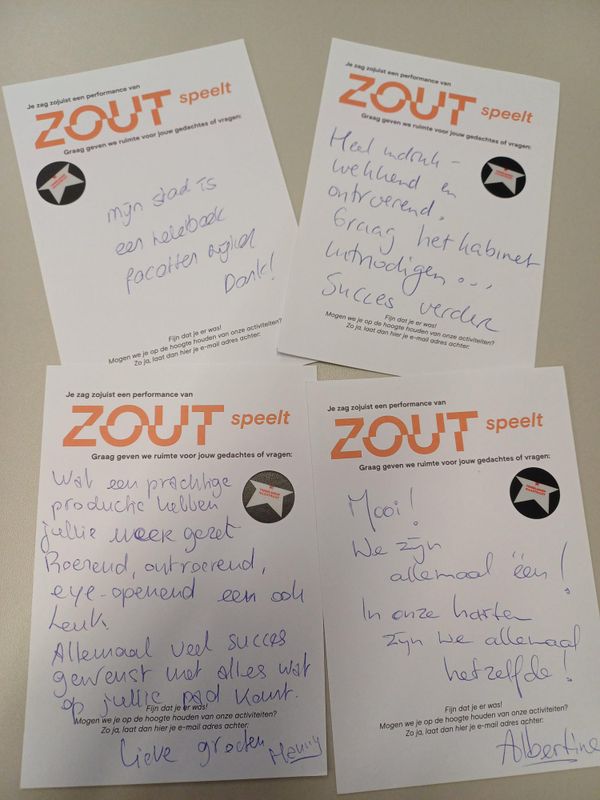 Je zag zojuist een performance van
ZOUT speelt
Graag geven we ruimte voor jouw gedachtes of vragen:
mijn stad is
een heleboek
facetten
Dank!
Fijn dat je er was!
Mogen we je op de hoogte houden van onze activiteiten?
Zo ja, laat dan hier je e-mail adres achter:
Je zag zojuist een performance van
ZOUT speelt
Graag geven we ruimte voor jouw gedachtes of vragen:
Heel indruk-
wekkend en
ontroerend.
Graag het kabinet
uitnodigen...
Succes verder
Fijn dat je er was!
Mogen we je op de hoogte houden van onze activiteiten?
Zo ja, laat dan hier je e-mail adres achter:
Je zag zojuist een performance van
ZOUT speelt
Graag geven we ruimte voor jouw gedachtes of vragen:
Wat een prachtige
productie hebben
jullie weer gezet
Roerend, ontroerend,
eye-openend een ook
leuk.
Allemaal veel succes
gewenst met alles wat
op jullie pad komt.
Fijn dat je er was!
Mogen we je op de hoogte houden van onze activiteiten?
Zo ja, laat dan hier je e-mail adres achter:
Lieve groeten
Je zag zojuist een performance van
ZOUT speelt
Graag geven we ruimte voor jouw gedachtes of vragen:
Mooi!
We zijn
allemaal één!
In onze harten
zijn we allemaal
hetzelfde!
Fijn dat je er was!
Mogen we je op de hoogte houden van onze activiteiten?
Zo ja, laat dan hier je e-mail adres achter:
Albertine